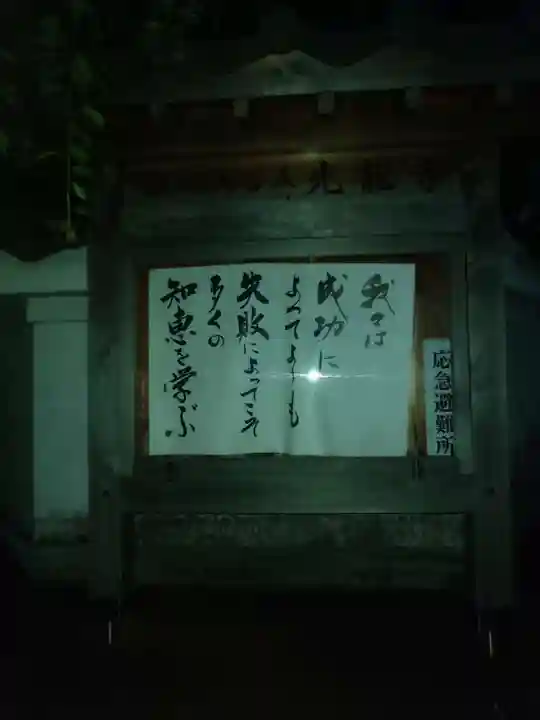 我々は
成功に
よってよりも
失敗によってこそ
多くの
知恵を学ぶ
応急避難所